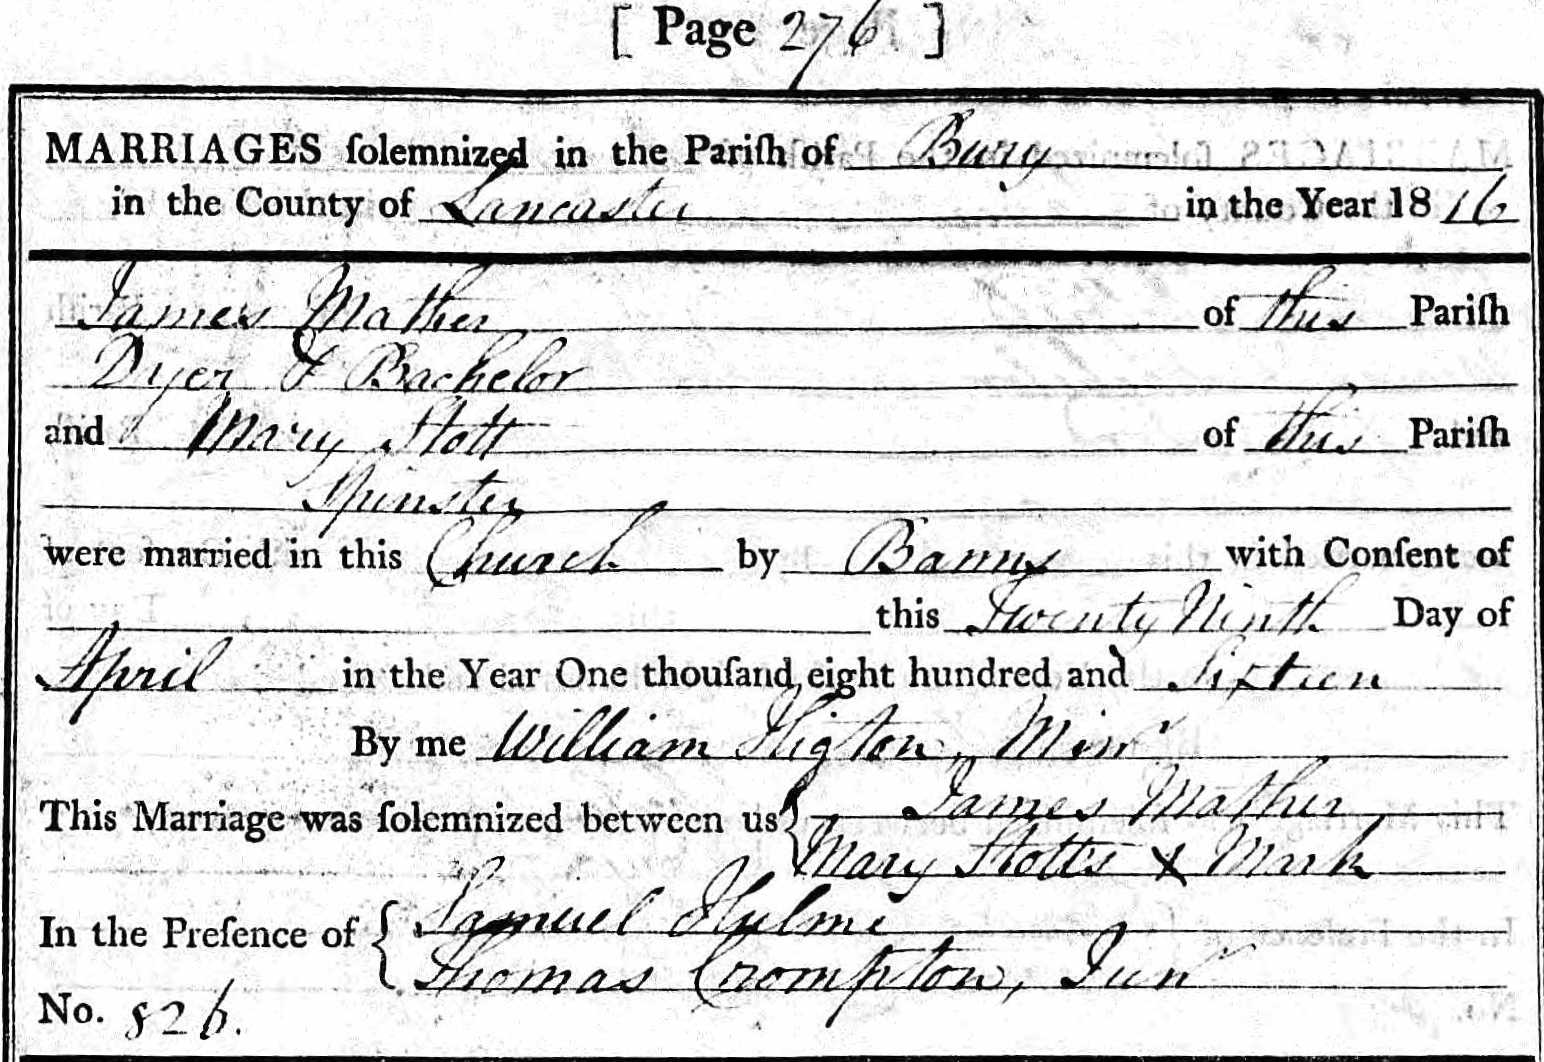 [ Page 276 ]
MARRIAGES ſolemnized in the Pariſh of Bury
in the County of Lancaster in the Year 1816
James Mather of this Pariſh
Dyer & Bachelor
and Mary Stott of this Pariſh
Spinster
were married in this Church by Banns with Conſent of
this Twenty Ninth Day of
April in the Year One thouſand eight hundred and Sixteen
By me William Higton, Minr
This Marriage was ſolemnized between us { James Mather
Mary Stotts X Mark
In the Preſence of { Samuel Hulme
Thomas Crompton, Junr
No. 826.